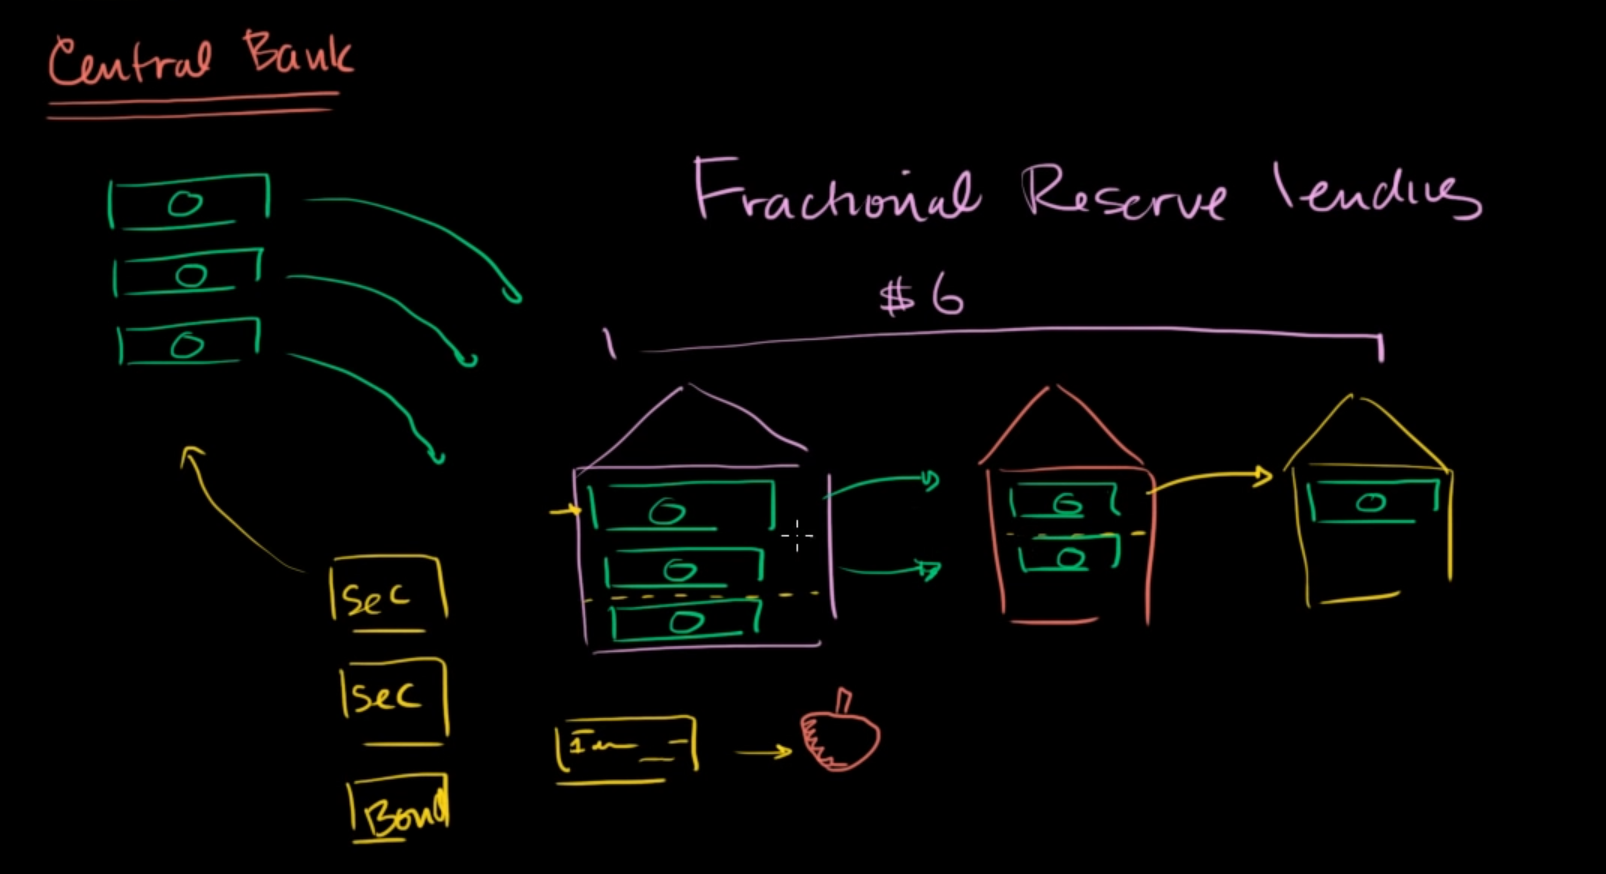 Central Bank
Fractional Reserve lending
$6
Sec
Sec
Bond